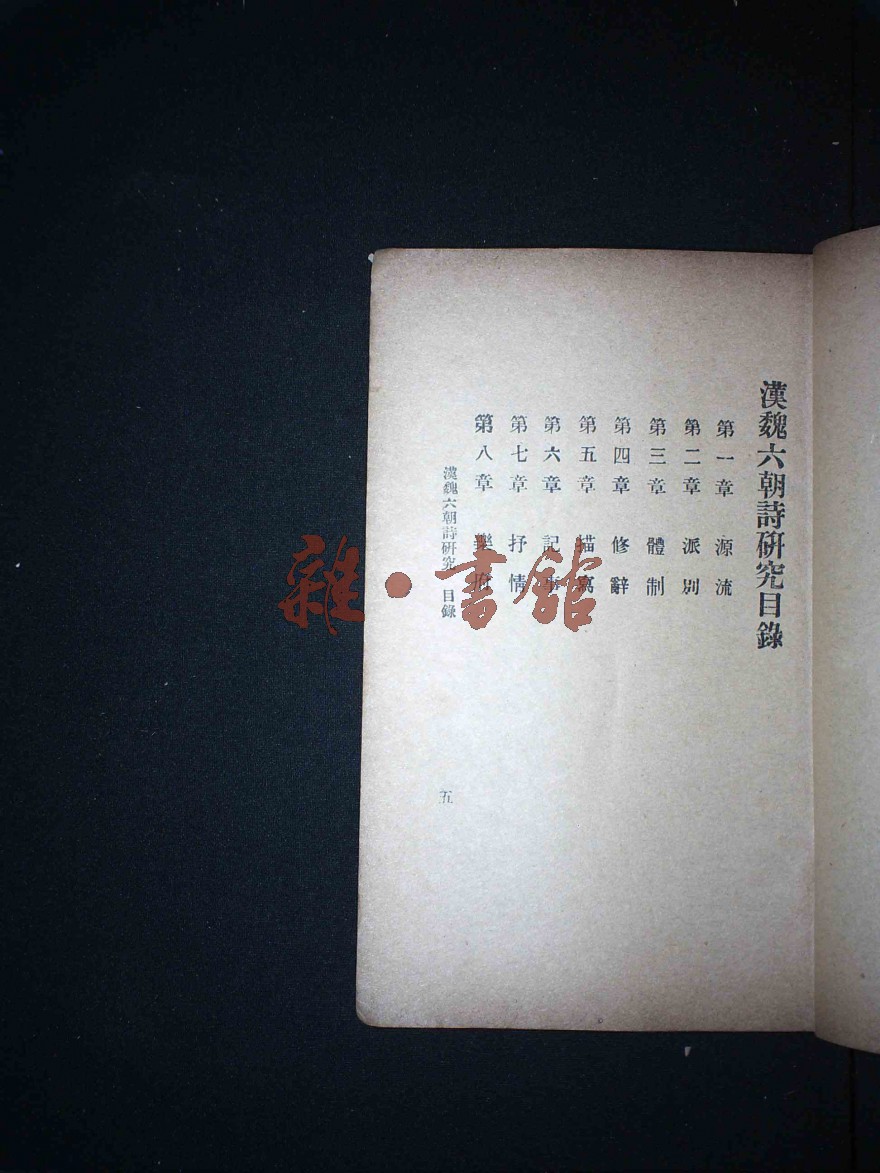 漢魏六朝詩硏究目錄
第一章 源流
第二章 派別
第三章 體制
第四章 修辭
第五章 描寫
第六章 記事
第七章 抒情
第八章 樂府
漢魏六朝詩硏究 目錄
五
雜·書館